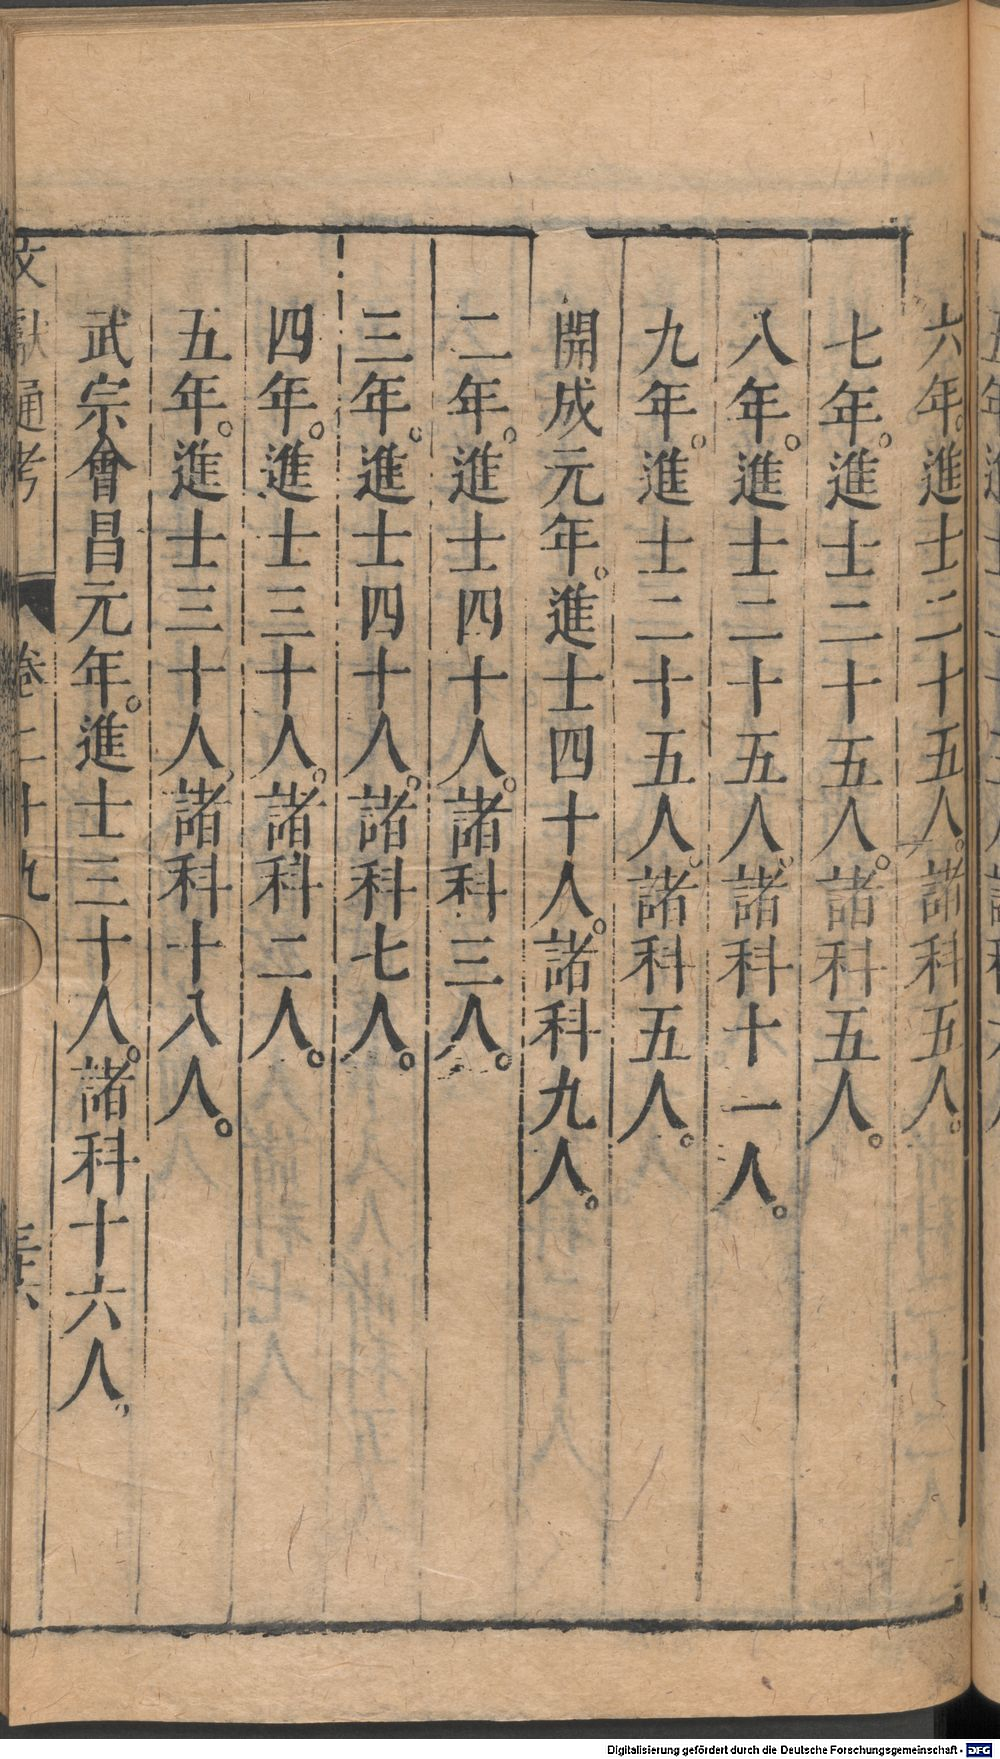 六年。進士二十五人。諸科五人。
七年。進士二十五人。諸科五人。
八年。進士二十五人。諸科十一人。
九年。進士二十五人。諸科五人。
開成元年。進士四十人。諸科九人。
二年。進士四十人。諸科三人。
三年。進士四十人。諸科七人。
四年。進士三十人。諸科二人。
五年。進士三十人。諸科十八人。
武宗會昌元年。進士三十人。諸科十六人。
文獻通考 卷二十九
Digitalisierung gefördert durch die Deutsche Forschungsgemeinschaft - DFG